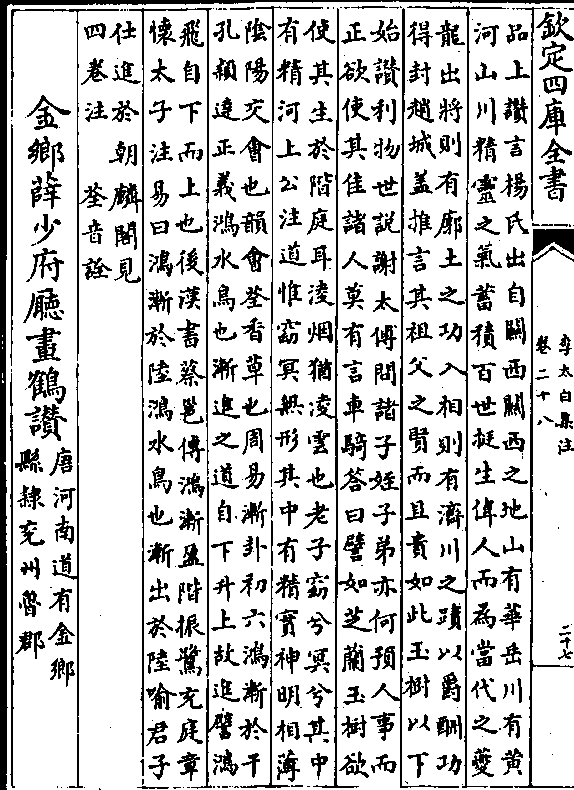 欽定四庫全書
李太白集注
卷二十八
二十七
品上讚言楊氏出自關西關西之地山有華岳川有黄
河山川精靈之氣蓄積百世挺生偉人而為當代之夔
龍出將則有廓土之功入相則有濟川之蹟以爵酬功
得封趙城盖推言其祖父之賢而且貴如此玉樹以下
始讚利物世説謝太傅問諸子姪子弟亦何預人事而
正欲使其佳諸人莫有言車騎答曰譬如芝蘭玉樹欲
使其生於階庭耳凌烟猶凌雲也老子窈兮冥兮其中
有精河上公注道惟窈冥無形其中有精實神明相薄
隂陽交會也韻會荃香草也周易漸卦初六鴻漸於干
孔頴達正義鴻水鳥也漸進之道自下升上故進譬鴻
飛自下而上也後漢書蔡邕傳鴻漸盈階振鷺充庭章
懷太子注易曰鴻漸於陸鴻水鳥也漸出於陸喻君子
仕進於朝麟閣見
四卷注 荃音詮
金鄉薛少府廳畫鶴讚
唐河南道有金鄉
縣隸兖州魯郡